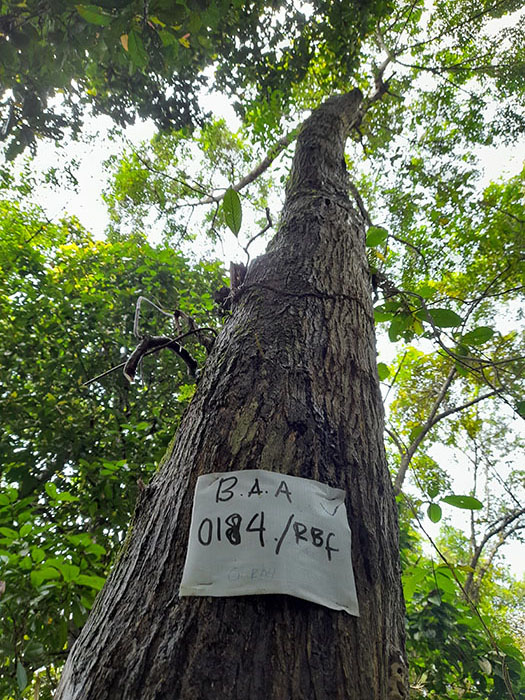 B.A.A
0184./RBf